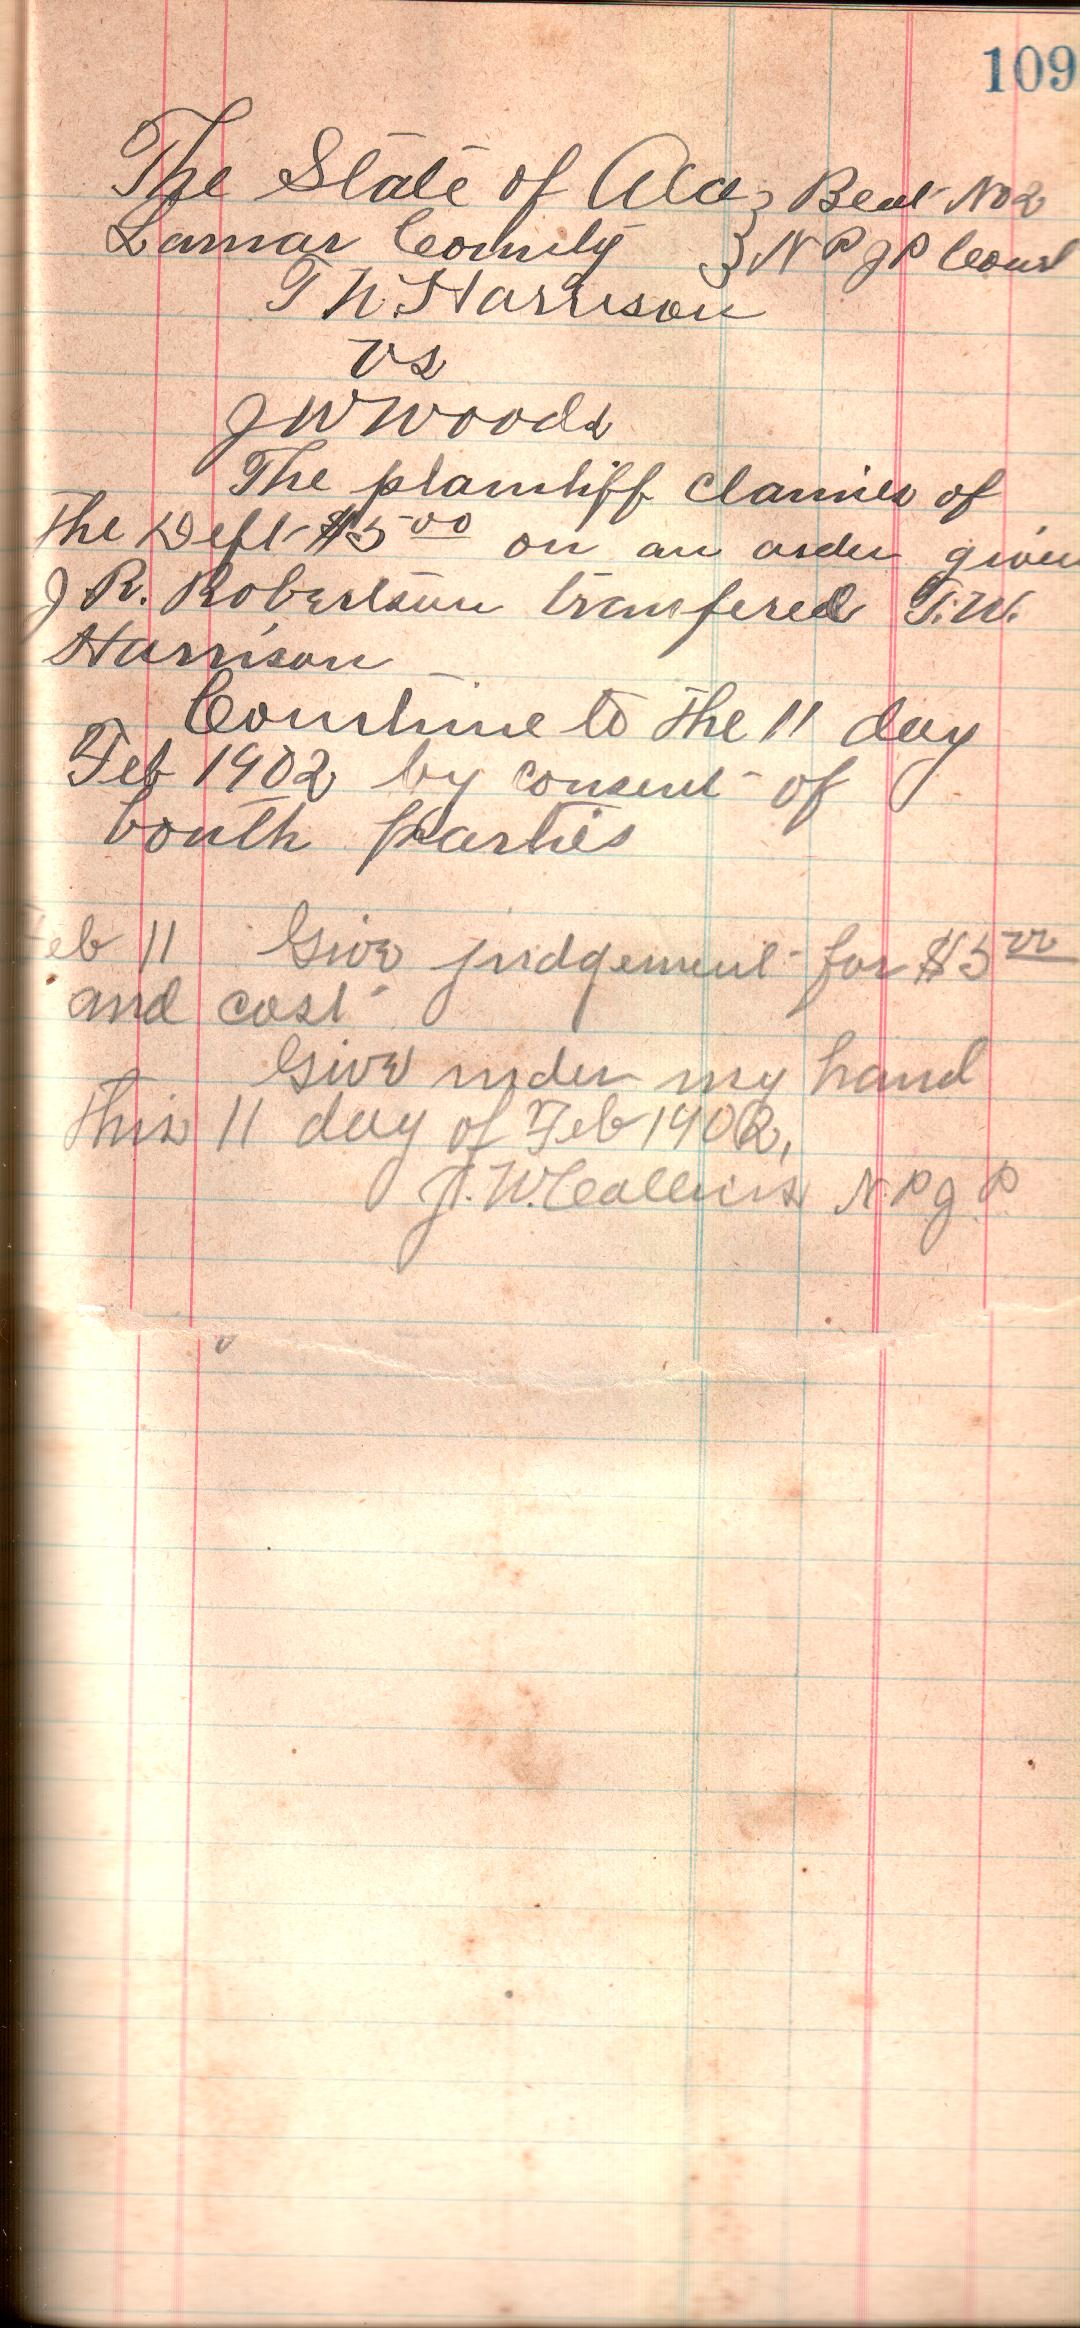 109
The State of Ala } Beat No 2
Lamar County } N P J P Court
T. W. Harrison
vs
J W Woods
The plaintiff claimes of
the Deft $5 00 on an order given
J R. Robertson transfered T. W.
Harrison
Countinue to the 11 day
Feb 1902 by consent of
bouth parties
Feb 11 Give judgement for $5 00
and cost
Give under my hand
this 11 day of Feb 1902,
J. W. Collins N. P J P